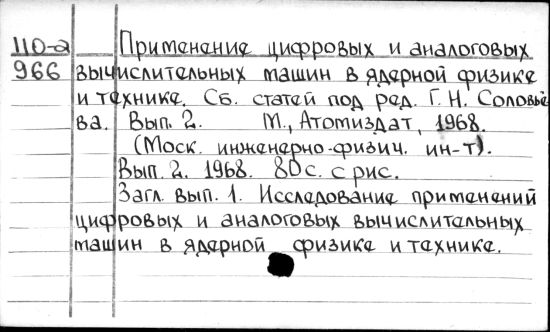 110-а Применение цифровых и аналоговых
966 вычислительных машин в ядерной физике
и технике. Сб. статей под ред. Г. Н. Соловье
ва. Вып. 2. М., Атомиздат, 1968.
(Моск. инженерно-физич. ин-т).
Вып. 2. 1968. 80 с. с рис.
Загл. вып. 1. Исследование применений
цифровых и аналоговых вычислительных
машин в ядерной физике и технике.